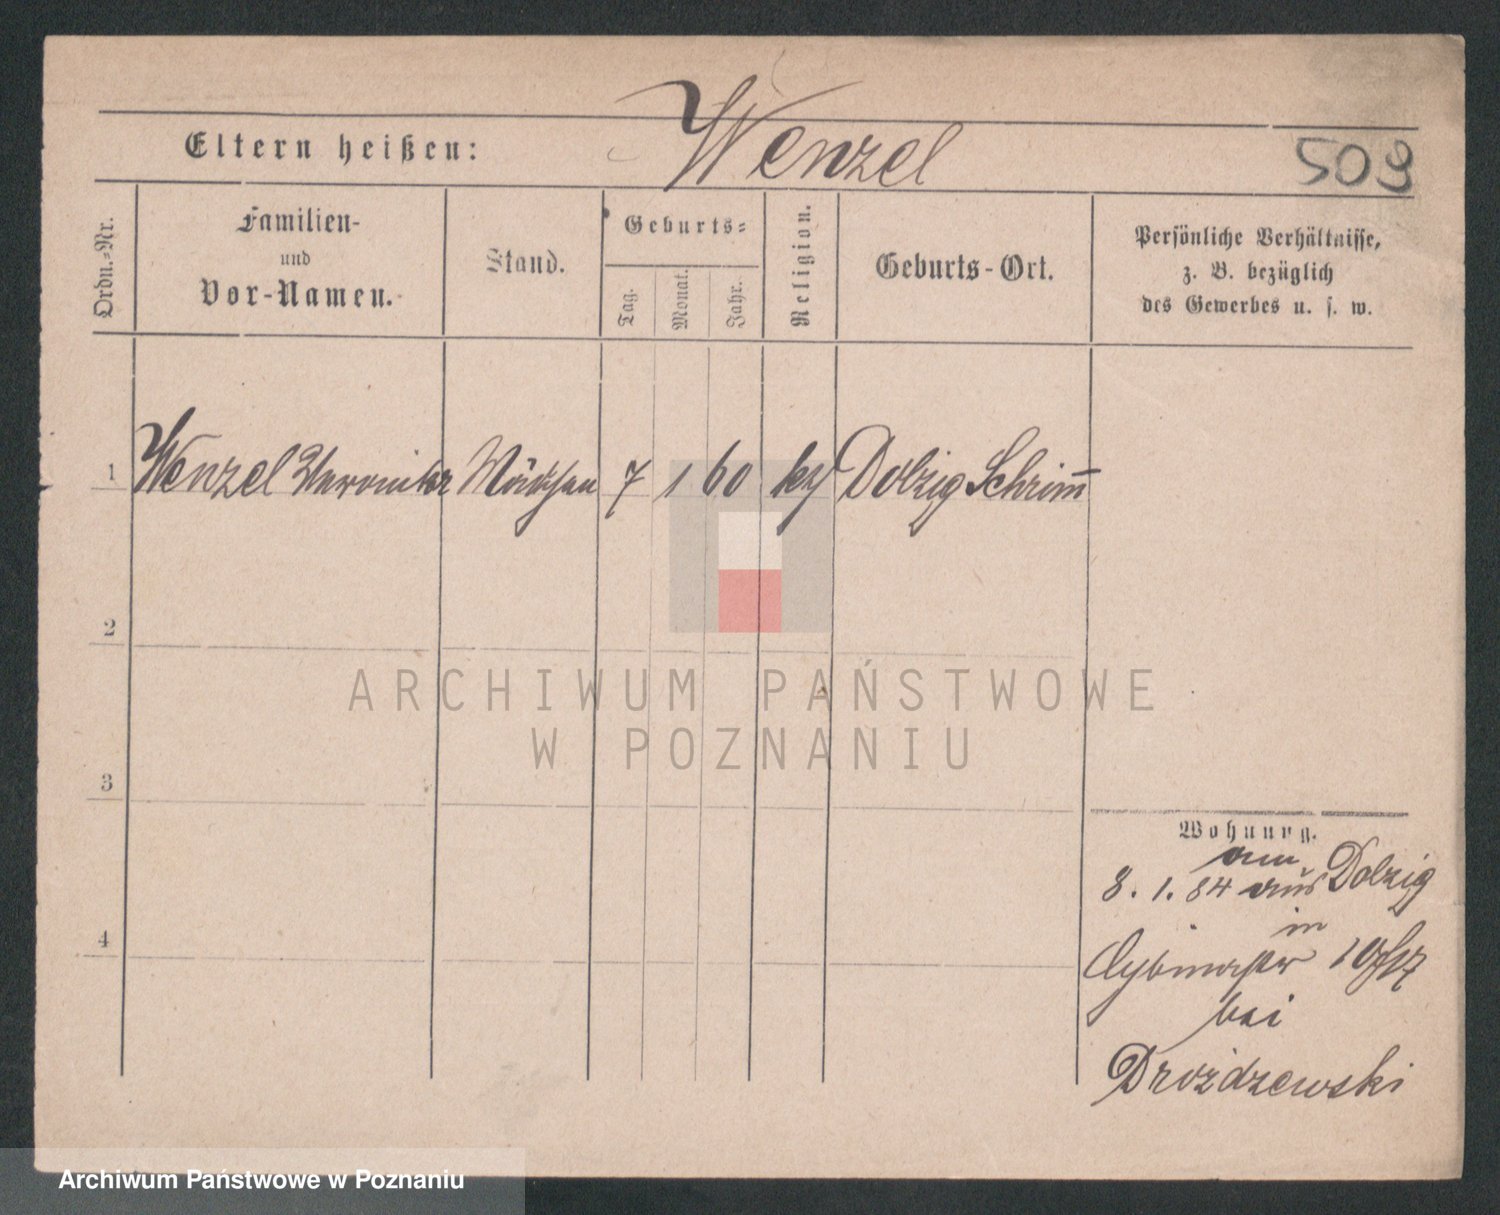 Wenzel
Eltern heißen:
509
Ordn.-Nr.
Familien-
und
Vor-Namen.
Stand.
Geburts-
Tag.
Monat.
Jahr.
Religion.
Geburts-Ort.
Persönliche Verhältnisse,
z. B. bezüglich
des Gewerbes u. s. w.
1 Wenzel Veronika Mädchen 7 1 60 Dolzig Schrimm
2
3
4
Wohnung.
am
8. 1. 84 aus Dolzig
in
bei
Drożdzewski
ARCHIWUM PAŃSTWOWE
W POZNANIU
Archiwum Państwowe w Poznaniu